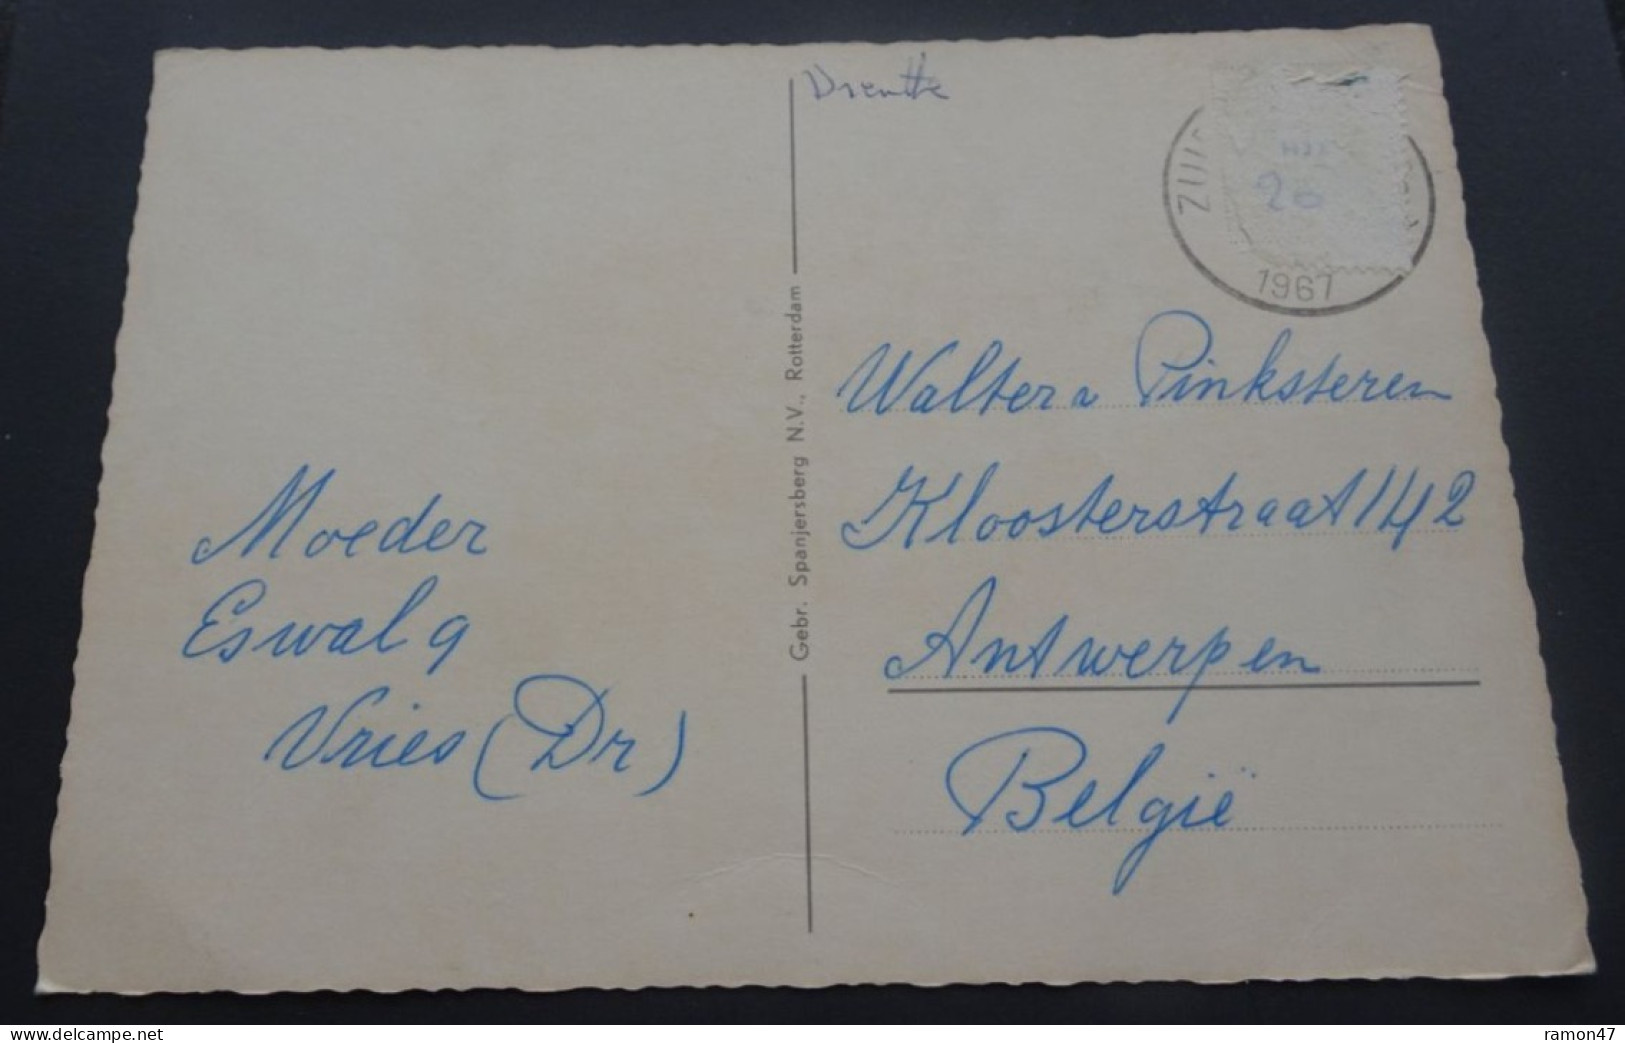 Drenthe
ZUI
1961
20
Gebr. Spanjersberg N.V., Rotterdam
Walter Pinksteren
Kloosterstraat 142
Antwerpen
België
Moeder
Eswal 9
Vries (Dr)
www.delcampe.net
ramon47